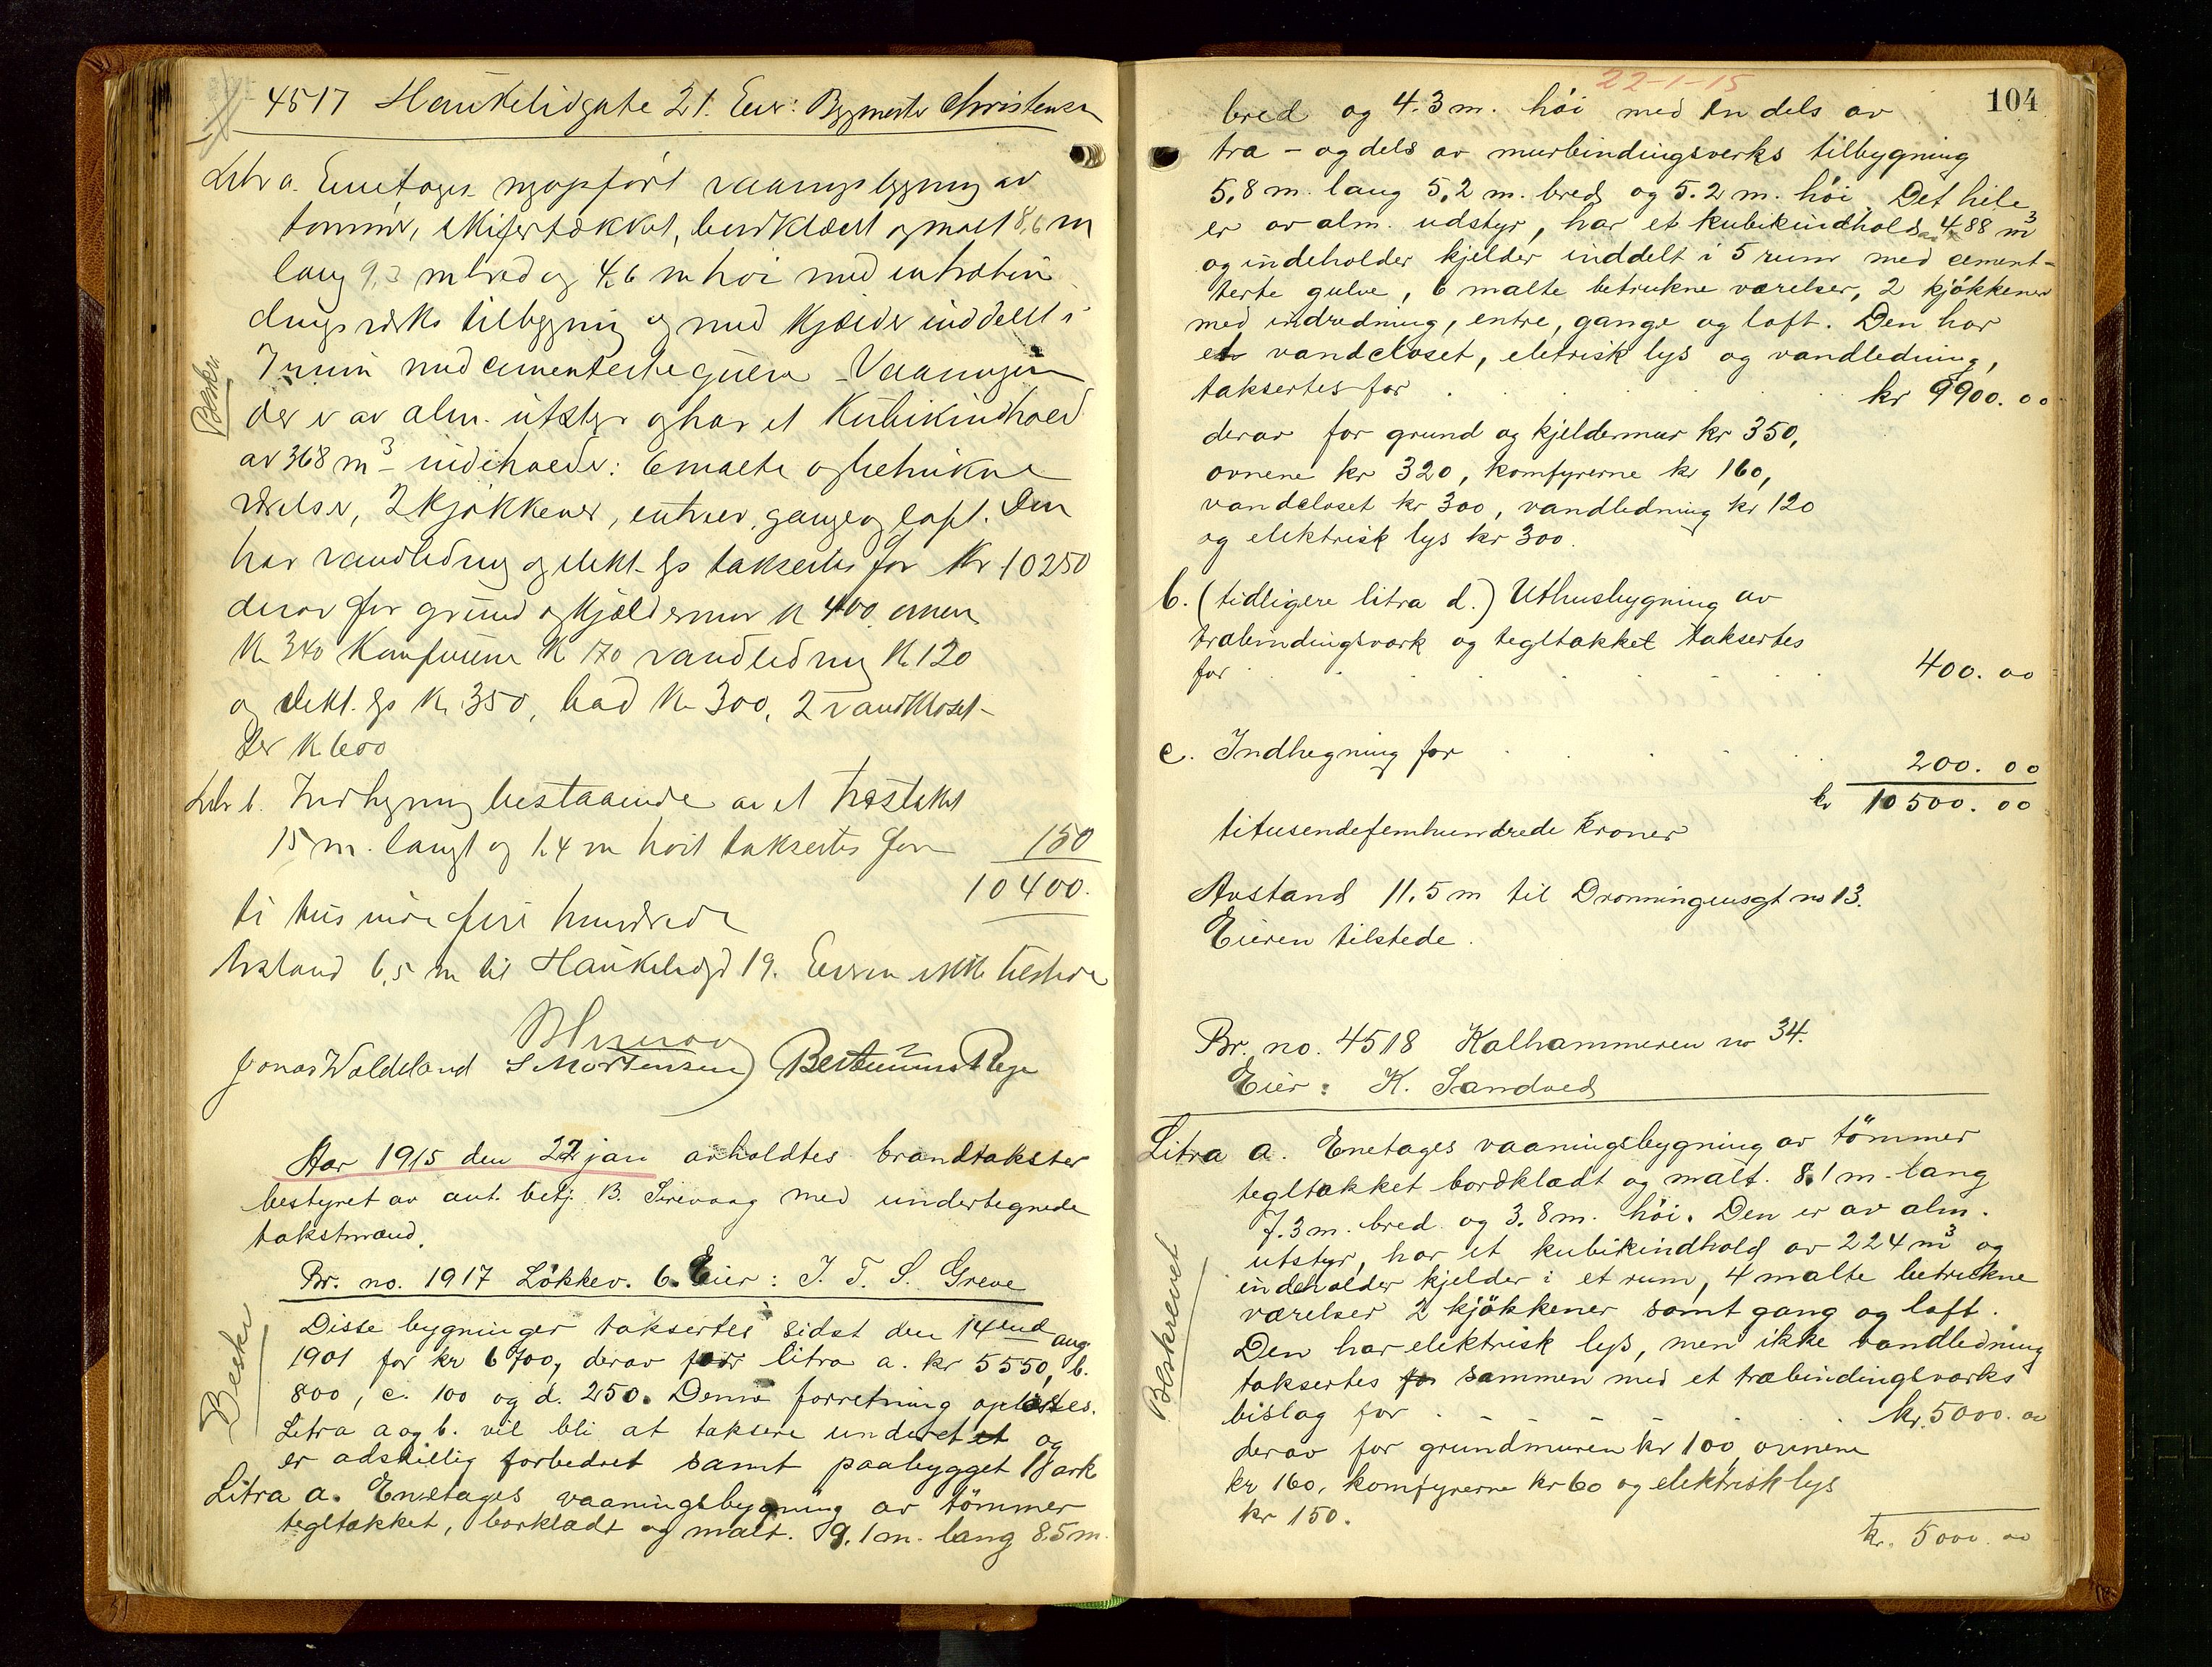 4517 Haukelidgate 21. Eier: Bygmester Christensen
Litr a. Enetages nyopført vaaningsbygning av
tømmer, skifertækket, bordklædt og malt 8,6 m
lang 9,3 m bred og 4,6 m høi med en træbin
dingsverks tilbygning og med kjelder inddelt i
7 rum med cementerte gulve. Vaaningen
der er av alm. utstyr og har et kubikindhold
av 368 m3 indeholder: 6 malte og betrukne
værelser, 2 kjøkkener, entreer, gange og loft. Den
har vandledning og elekt. lys taksertes for Kr 10250
derav for grund og kjældermur kr 400. ovnene
kr 340 komfurene kr 170 vandledning kr 120
og elekt. lys kr 350, bad kr 300, 2 vandkloset-
ter kr 600
Litr b. Indhegning bestaaende av et træstaket
15 m. langt og 1,4 m høit taksertes for 150
10400.
ti tusinde fire hundrede
Avstand 6,5 m til Haukelidgt 19. Eieren ikke tilstede
Jonas Waldeland S Mortensen
Beskr.
Aar 1915 den 22 jan avholdtes brandtakster
bestyret av aut. betj. B. Sirevaag med undertegnede
takstmænd.
Br. no. 1917 Løkkev. 6. Eier: J. T. S. Greve
Beskr
Disse bygninger taksertes sidst den 14end aug.
1901 for kr 6700, derav for litra a. kr 5550, b.
800, c. 100 og d. 250. Denne forretning opløstes.
Litra a og b. vil bli at taksere under et og
er adskillig forbedret samt paabygget 1 ark
Litra a. Enetages vaaningsbygning av tømmer
tegltækket, borklædt og malt. 9.1 m. lang 8.5 m.
22-1-15
104
bred og 4.3 m. høi med en dels av
træ- og dels av murbindingsverks tilbygning
5,8 m. lang 5,2 m. bred og 5.2 m. høi. Det hele
er av alm. udstyr, har et kubikindhold av 488 m3
og indeholder kjelder inddelt i 5 rum med cement-
terte gulve, 6 malte betrukne værelser, 2 kjøkkener
med indredning, entre, gange og loft. Den har
et vandcloset, eletrisk lys og vandledning,
taksertes for kr 9900.00
derav for grund og kjeldermur kr 350,
ovnene kr 320, komfyrerne kr 160,
vandcloset kr 300, vandledning kr 120
og elektrisk lys kr 300.
b. (tidligere litra d.) Uthusbygning av
træbindingsværk og tegltækket taksertes
for 400.00
c. Indhegning for 200.00
kr 10500.00
titusendefemhundrede kroner
Avstand 11.5 m til Dronningensgt no 13.
Eieren tilstede.
Br. no. 4518 Kalhammeren no 34.
Eier: K. Sandved
Litra a. Enetages vaaningsbygning av tømmer
tegltækket bordklædt og malt. 8.1 m. lang
7.3 m. bred og 3.8 m. høi. Den er av alm.
utstyr, har et kubikindhold av 224 m3 og
indeholder kjelder i et rum, 4 malte betrukne
værelser 2 kjøkkener samt gang og loft.
Den har elektrisk lys, men ikke vandledning
taksertes for sammen med et træbindingsværks
bislag for kr. 5000.00
derav for grundmuren kr 100, ovnene
kr 160, komfyrerne kr 60 og elektrisk lys
kr 150.
kr. 5000.00
Beskrevet